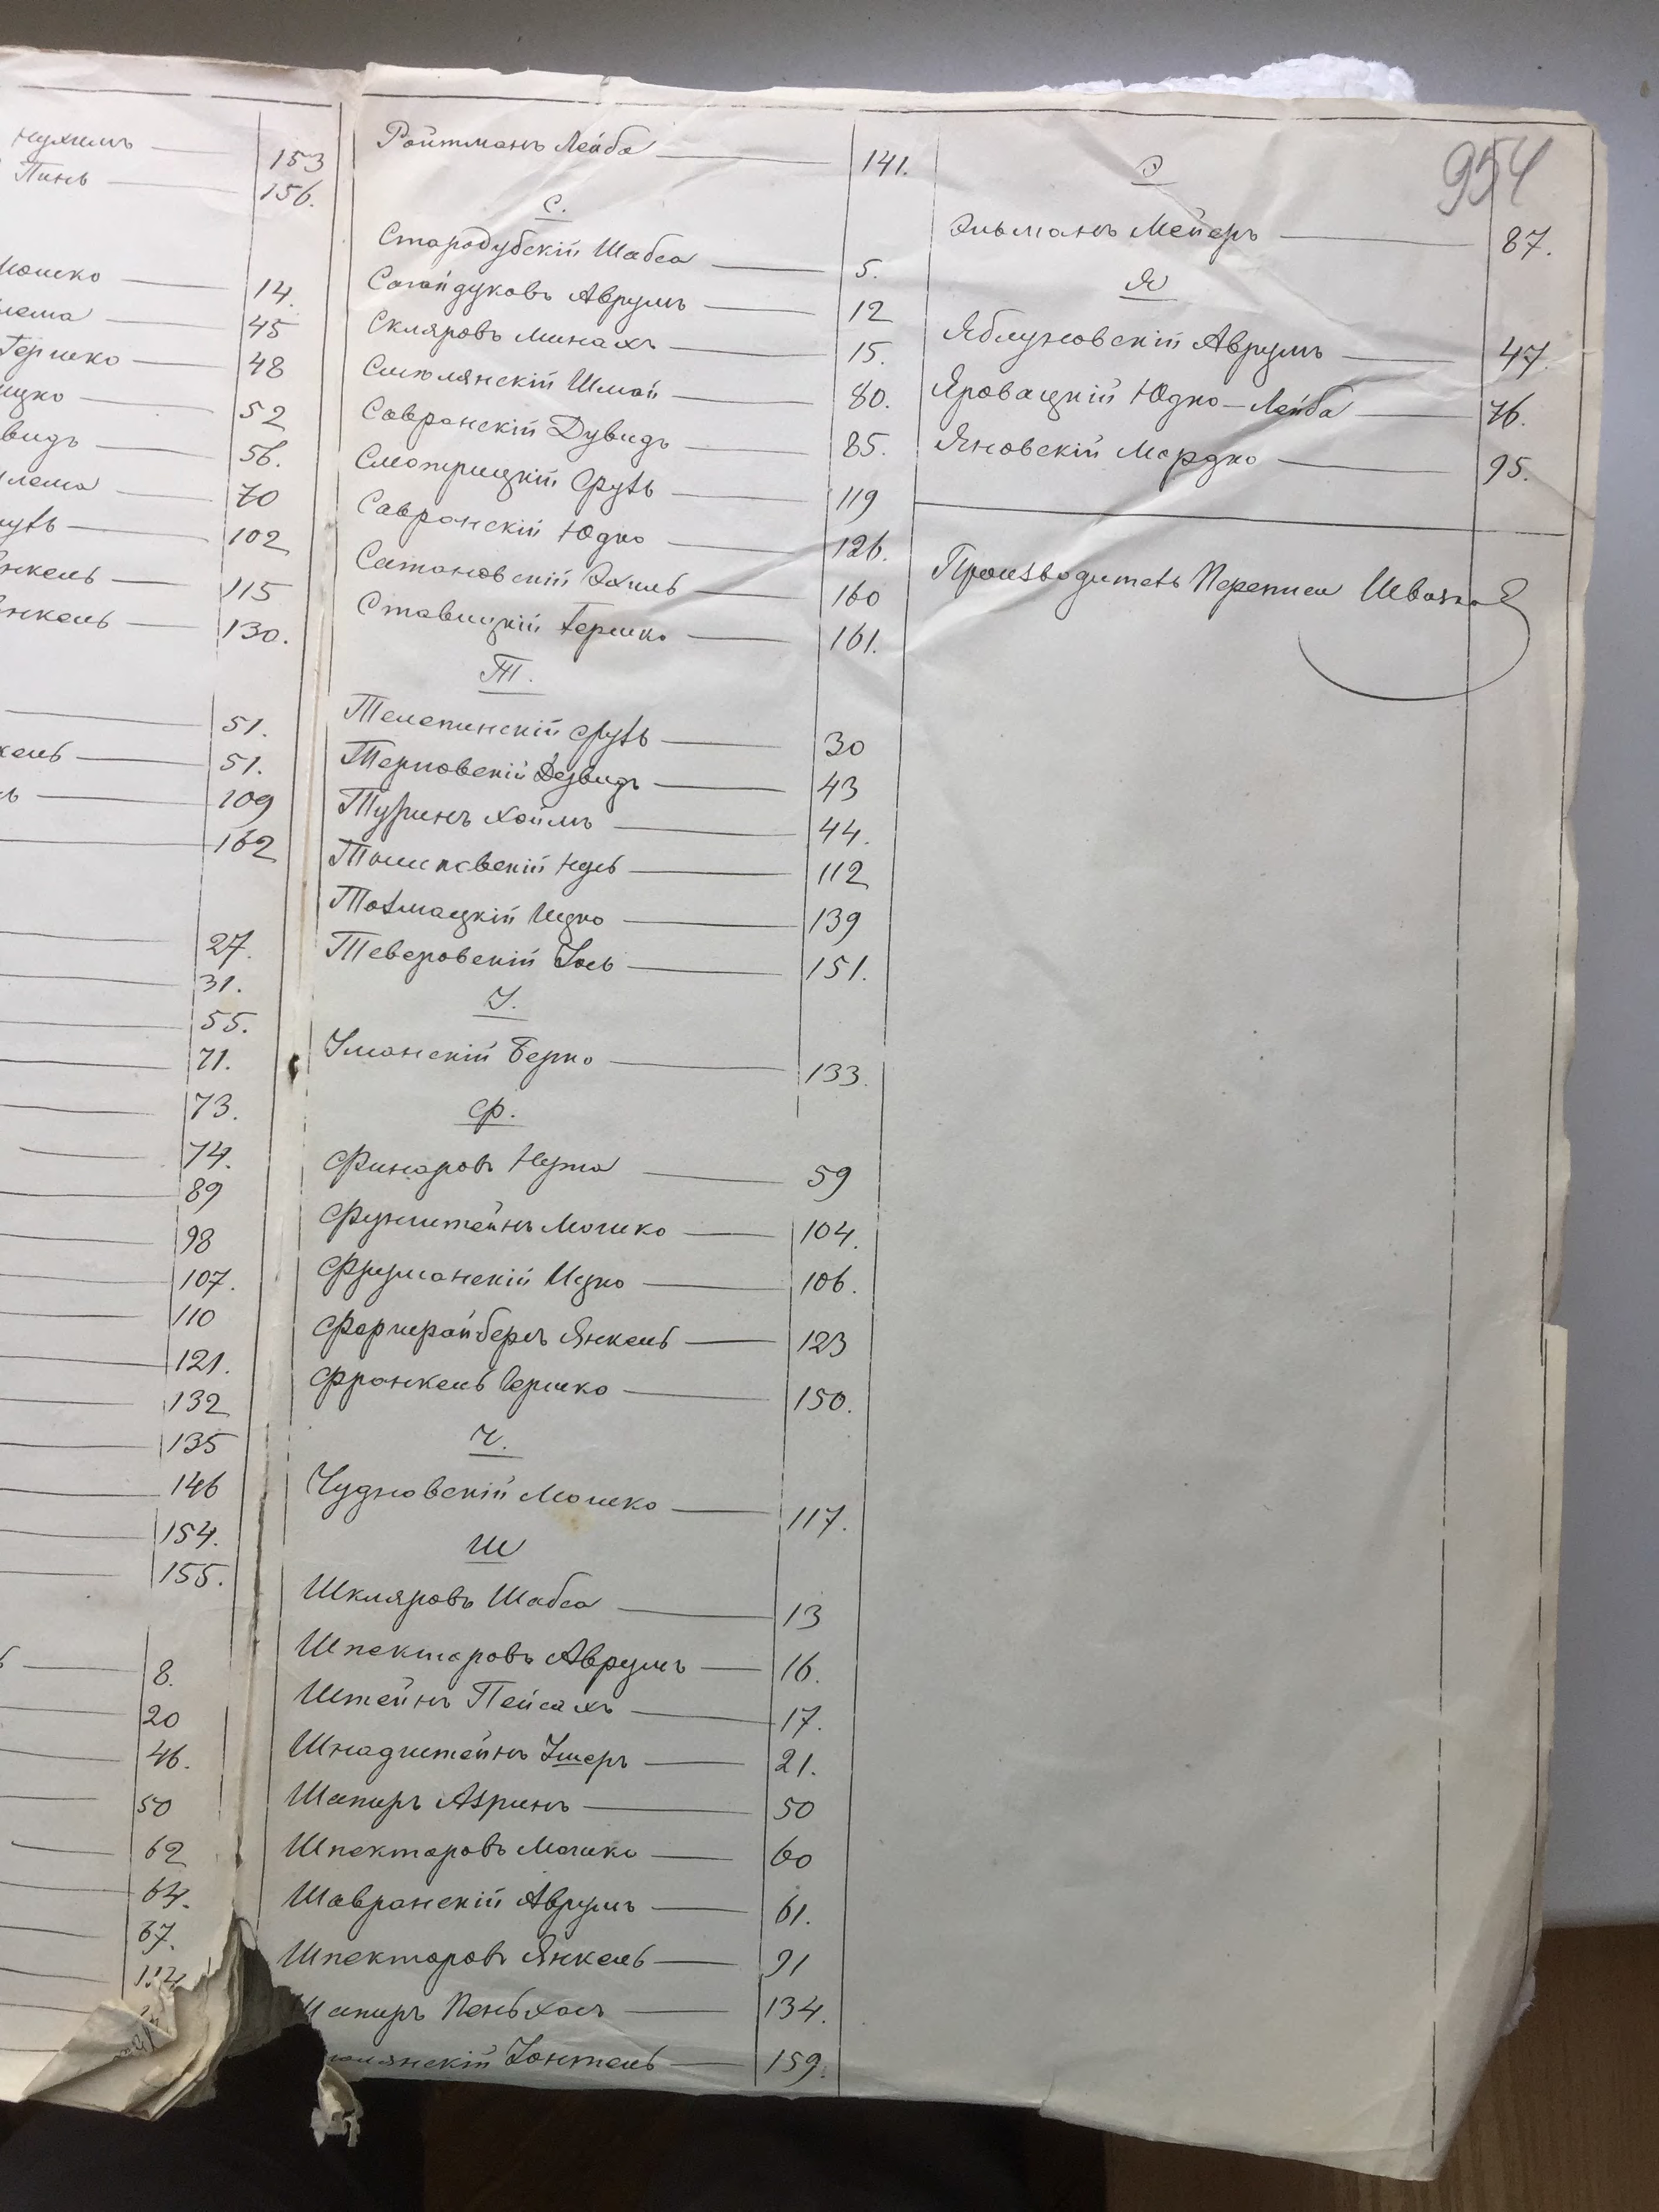 954
нухимъ — 153
Пинь — 156.
14.
45
Гершко — 48
52
56.
70
102
115
130.
51.
51.
109
162
27.
31.
55.
71.
73.
74.
89
98
107.
110
121.
132
135
146
154.
155.
8.
20
46.
50
62
64.
67.
Ройтманъ Лейба — 141.
С.
Стародубскій Шабса — 5.
Сагайдуковъ Аврумъ — 12
Скляровъ Минахъ — 15.
Смолянскій Шмай — 80.
Савранскій Дувидъ — 85.
Смотрицкій Сруль — 119
Савранскій Юдко — 126.
Сатановскій Эхиль — 160
Ставицкій Гершко — 161.
Т.
Телепинскій Сруль — 30
Терновскій Давидъ — 43
Туринъ Хаимъ — 44.
Томшковскій Нусь — 112
Толмацкій Ицко — 139
Теверовскій Іось — 151.
У.
Уманскій Берко — 133.
Ф.
Финаровъ Нута — 59
Фунштейнъ Мошко — 104.
Фруманскій Ицко — 106.
Форшрайберъ Янкель — 123
Франкель Гершко — 150.
Ч.
Чудновскій Мошко — 117.
Ш
Шкляровъ Шабса — 13
Шпекторовъ Аврумъ — 16.
Штейнъ Пейсахъ — 17.
Шнадштейнъ Ушеръ — 21.
Шапиръ Азринъ — 50
Шпекторовъ Мошко — 60
Шавранскій Аврумъ — 61.
Шпекторовъ Янкель — 91
Шапиръ Пеньхасъ — 134.
Іонтель — 159.
Э
Эльманъ Мейеръ — 87.
Я
Яблуновскій Аврумъ — 47.
Яровацкій Юдко-Лейба — 76.
Яновскій Мордко — 95.
Производитель Переписи